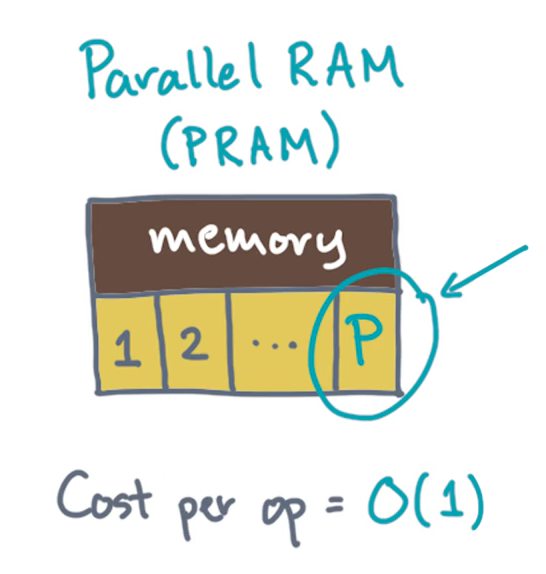 Parallel RAM
(PRAM)
memory
1 2 ... P
Cost per op = O(1)